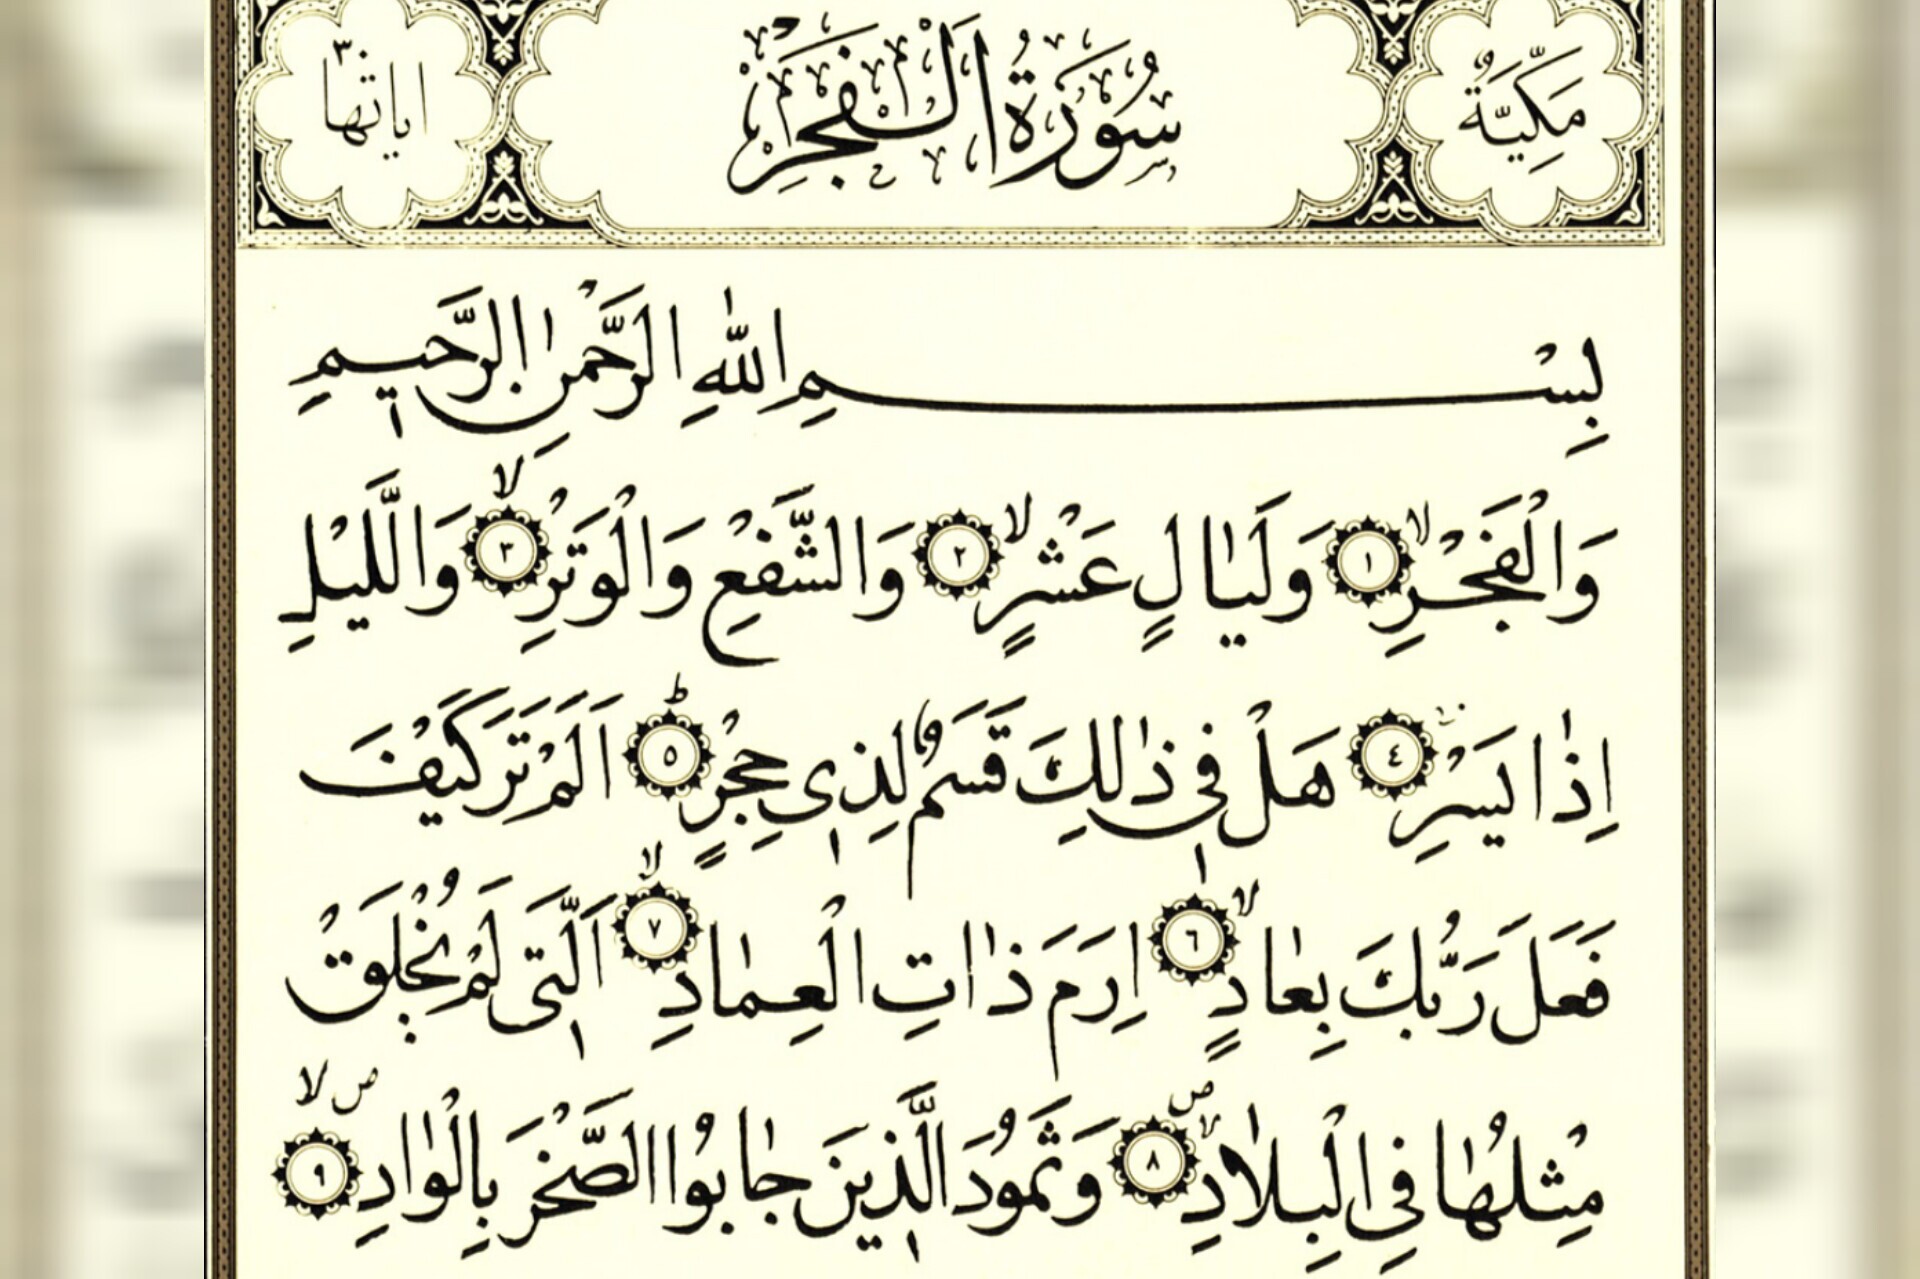 مَكِّيَّةٌ سُورَةُ الْفَجْرِ اٰيَاتُهَا ٣٠
بِسْمِ اللّٰهِ الرَّحْمٰنِ الرَّحِيمِ
وَالْفَجْرِۙ ١ وَلَيَالٍ عَشْرٍۙ ٢ وَالشَّفْعِ وَالْوَتْرِۙ ٣ وَاللَّيْلِ
اِذَا يَسْرِۚ ٤ هَلْ فِى ذٰلِكَ قَسَمٌ لِذِى حِجْرٍۜ ٥ اَلَمْ تَرَ كَيْفَ
فَعَلَ رَبُّكَ بِعَادٍۙ ٦ اِرَمَ ذَاتِ الْعِمَادِۙ ٧ اَلَّتِى لَمْ يُخْلَقْ
مِثْلُهَا فِى الْبِلَادِۙۖ ٨ وَثَمُودَ الَّذِينَ جَابُوا الصَّخْرَ بِالْوَادِۙۖ ٩